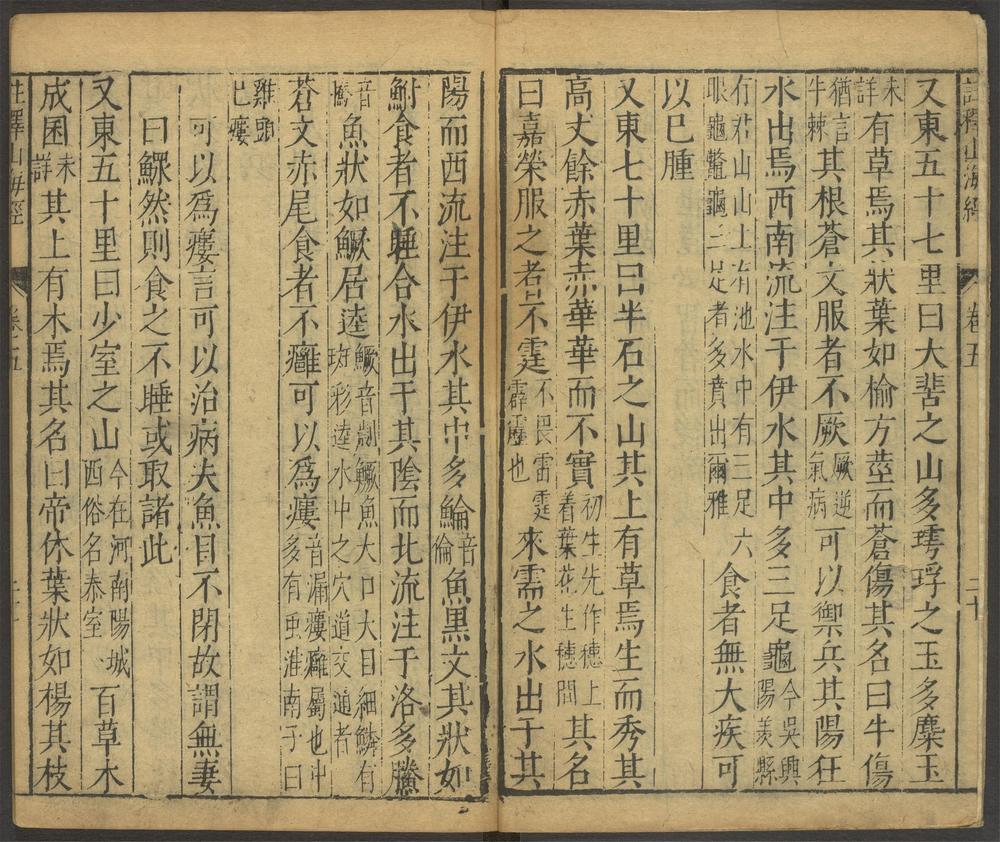 註釋山海經 卷五 二十
又東五十七里曰大𦮴之山多㻬琈之玉多麋玉
未詳有草焉其狀葉如榆方莖而蒼傷其名曰牛傷
猶言牛棘其根蒼文服者不厥厥逆氣病可以禦兵其陽狂
水出焉西南流注于伊水其中多三足龜今吳興陽羨縣
有君山山上有池水中有三足六眼龜鼈龜三足者多賁出爾雅食者無大疾可
以已腫
又東七十里曰半石之山其上有草焉生而秀其
高丈餘赤葉赤華華而不實初生先作穗上着葉花生穗間其名
曰嘉榮服之者不霆不畏雷霆霹靂也來需之水出于其
陽而西流注于伊水其中多鯩音倫魚黑文其狀如
鮒食者不睡合水出于其陰而北流注于洛多䲢
音騰魚狀如鱖居逵鱖音劌鱖魚大口大目細鱗有斑彩逵水中之穴道交通者
蒼文赤尾食者不癰可以爲瘻音漏瘻癰屬也中多有虫淮南子曰
雞頭已瘻
可以爲瘻言可以治病夫魚目不閉故謂無妻
曰鰥然則食之不睡或取諸此
又東五十里曰少室之山今在河南陽城西俗名泰室百草木
成囷未詳其上有木焉其名曰帝休葉狀如楊其枝
註釋山海經 卷五